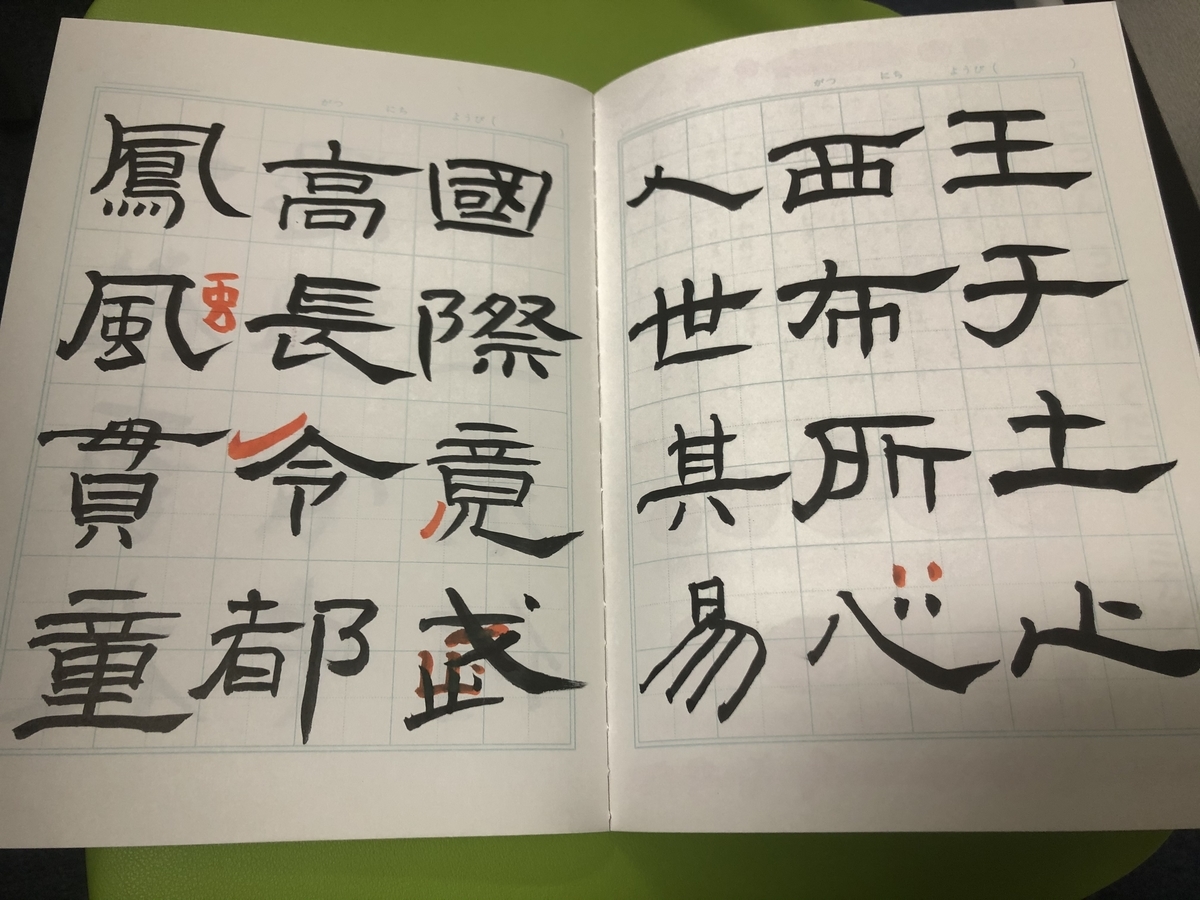 がつ にち ようび( )
王子土止
西布所心
人世其易
がつ にち ようび( )
國際竟武
高長令都
鳳風貫童